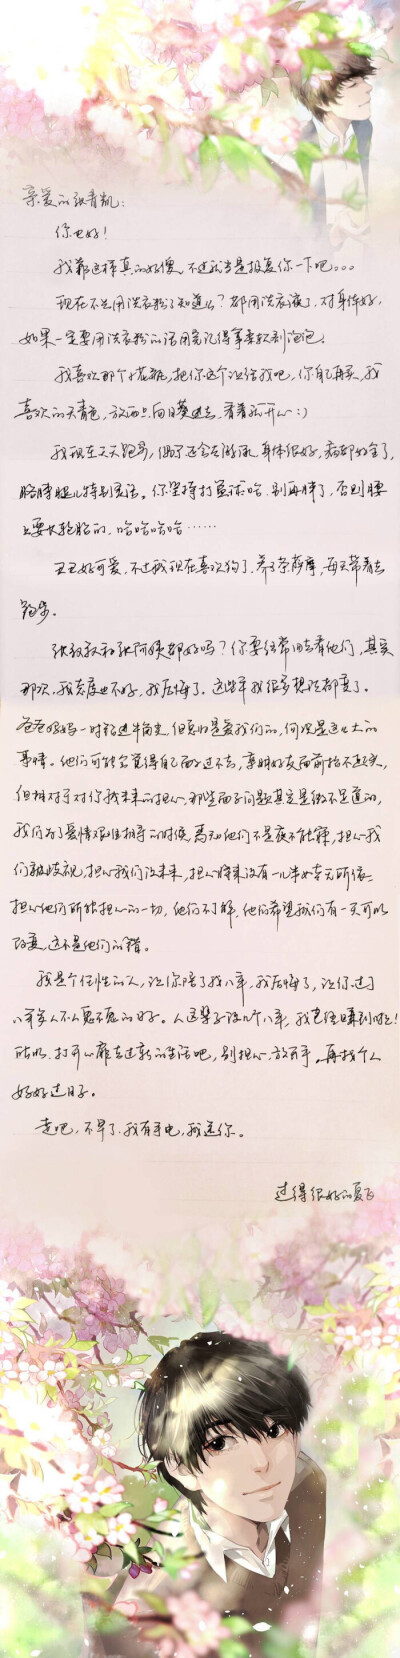 亲爱的张青凯：
你也好！
我靠这样真的好傻，不过就当是报复你一下吧。。。
现在不是用洗衣粉了知道么？都用洗衣液了，对身体好，
如果一定要用洗衣粉的话用完记得拿柔软剂泡泡。
我喜欢那个小花瓶，把你这个让给我吧，你自己再买，我
喜欢的天青色，放两只向日葵进去，看着就开心:)
我现在天天跑步，偶尔还会去游泳，身体很好，病都好全了，
胳膊腿儿特别灵活。你坚持打篮球哈，别再胖了，否则腰
上要长轮胎的，哈哈哈哈……
丑丑好可爱，不过我现在喜欢狗了，养了条萨摩，每天带着去
跑步。
张叔叔和张阿姨都好吗？你要经常回去看他们，其实
那次，我态度也不好，我后悔了。这些年我很多想法都变了。
爸爸妈妈一时钻进牛角尖，但总归是爱我们的，何况是这么大的
事情。他们可能会觉得自己面子过不去，亲朋好友面前抬不起头，
但相对于对你我未来的担心，那些面子问题其实是微不足道的，
我们为了爱情艰难相守的时候，焉知他们不是夜不能寐，担心我
们被歧视，担心我们没未来，担心将来没有一儿半女老无所依…
担心他们所能担心的一切，他们不了解，他们希望我们有一天可以
改变，这不是他们的错。
我是个任性的人，让你陪了我八年，我后悔了，让你过了
八年人不人鬼不鬼的日子。人这辈子没几个八年，我已经赚到啦！
所以，打开心扉去过新的生活吧，别担心，放开手，再找个人
好好过日子。
走吧，不早了，我有手电，我送你。
过得很好的夏飞